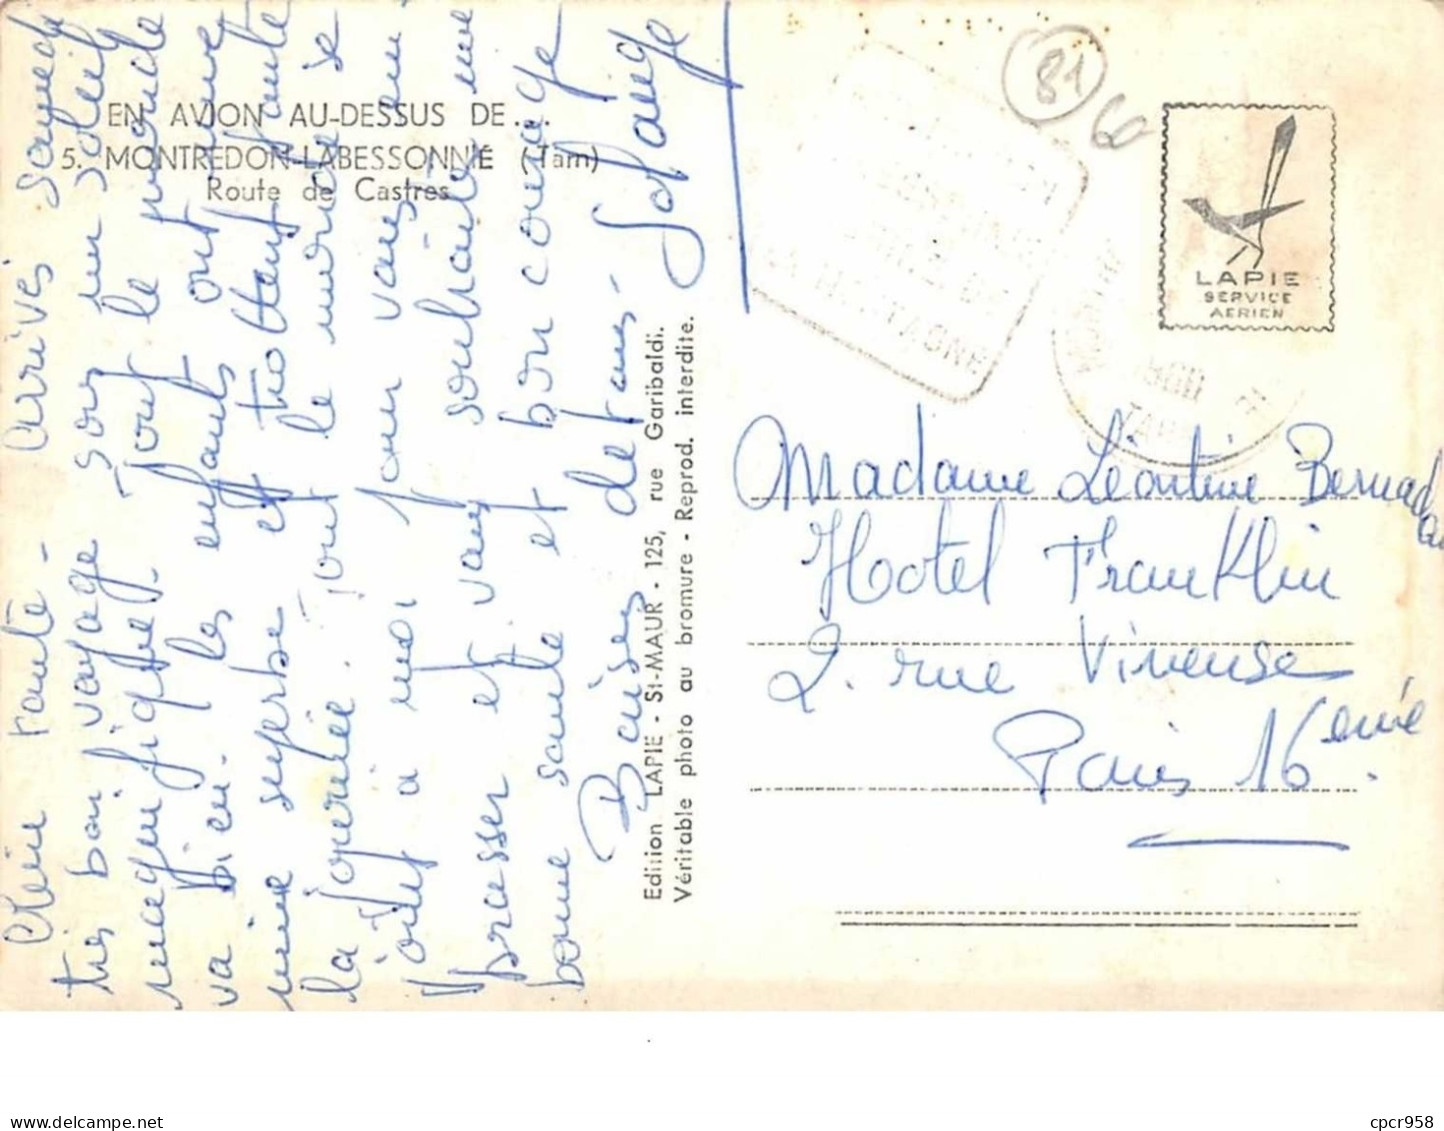 EN AVION AU-DESSUS DE...
5. MONTREDON-LABESSONNIÉ (Tarn)
Route de Castres
Chère tante - arrivés samedi
très bon voyage sous un soleil
magnifique. Tout le monde
va bien. Les enfants ont une
mine superbe et trottent toute
la journée. Tout le monde se
joint à moi pour vous em
brasser et vous souhaite une
bonne santé et bon courage
Baisers de tous -
Solange
Edition LAPIE - St-MAUR - 125, rue Garibaldi.
Véritable photo au bromure - Reprod. interdite.
81
LAPIE
SERVICE
AERIEN
MONTAGNE
TARN
Madame Léontine
Hotel Franklin
2. rue Vineuse
Paris 16ème
cpcr958
delcampe.net